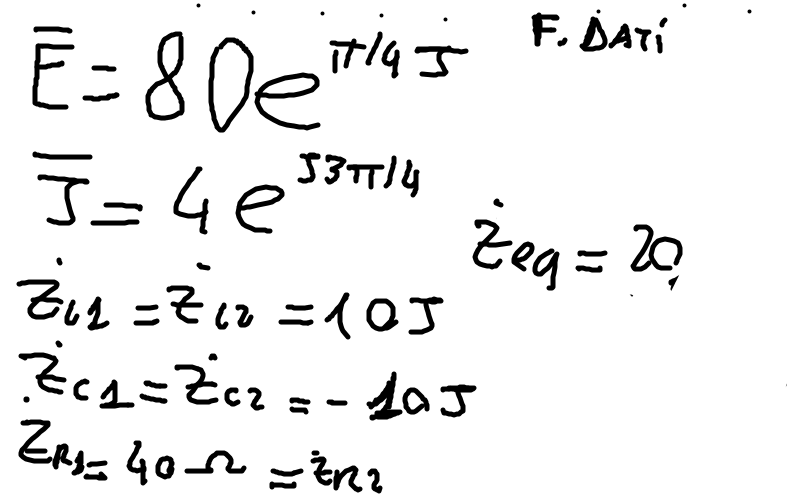 F. DATI
E̅ = 80e^{π/4 J}
J̅ = 4 e^{J3π/4}
Żeq = 20
ŻL1 = ŻL2 = 10J
ŻC1 = ŻC2 = - 10J
ŻR1 = 40 Ω = ŻR2